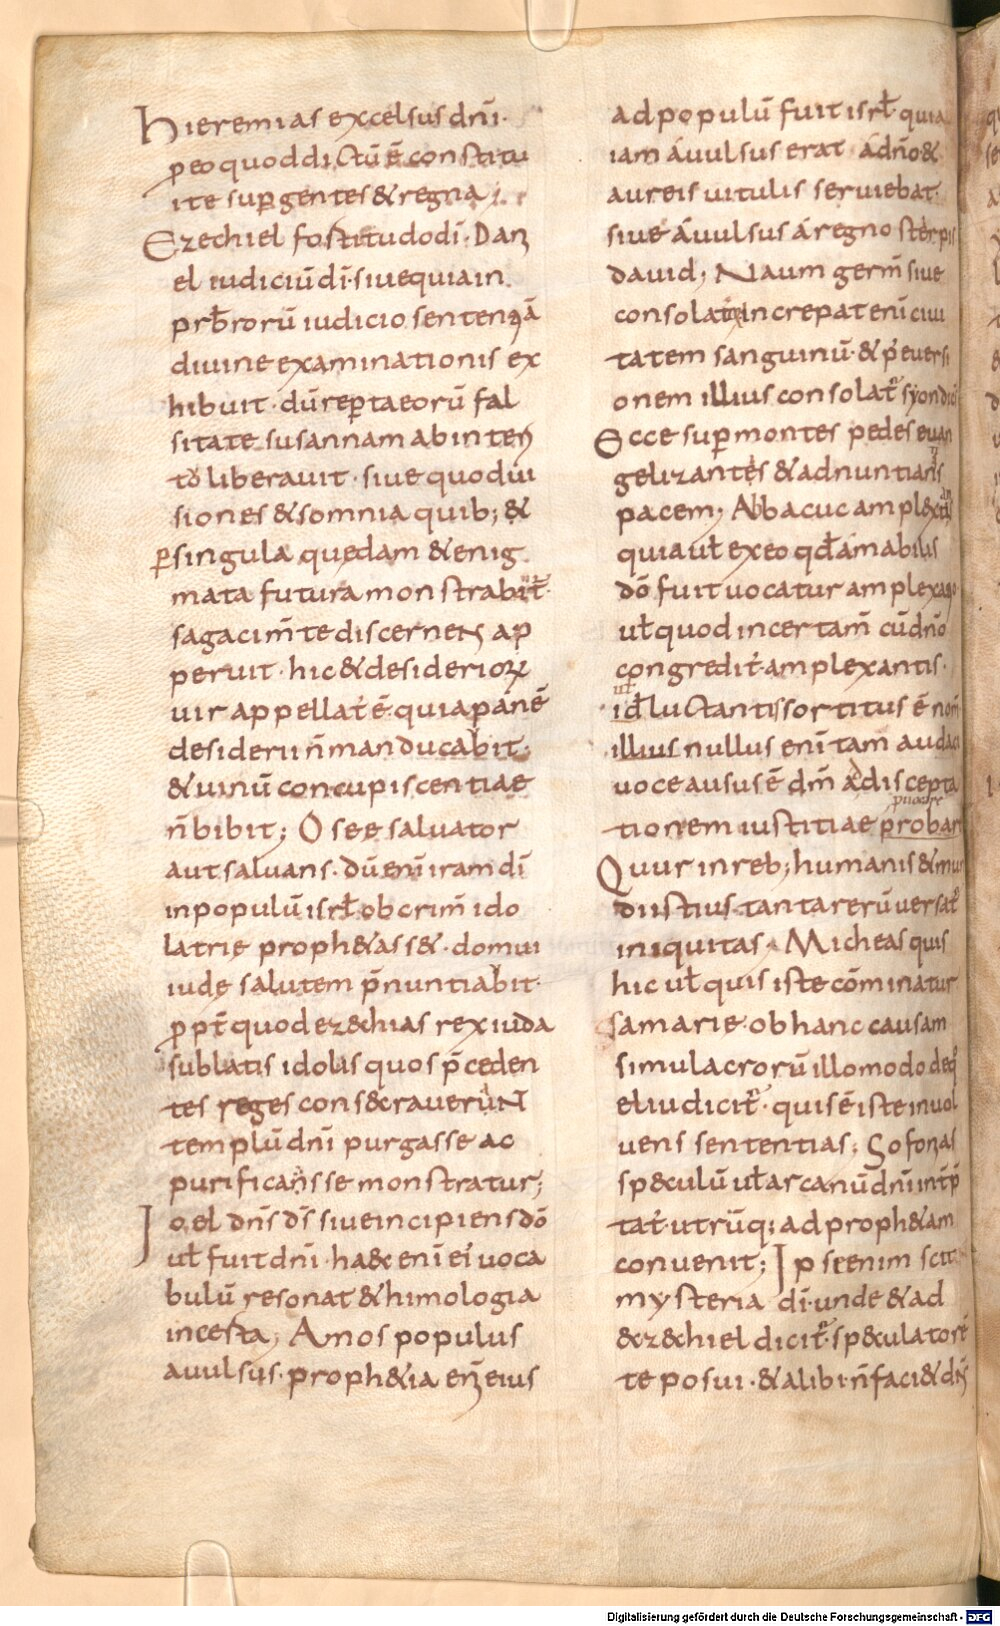 Hieremias excelsus dnī·
ꝑeo quod dictū ē constitu
i te suꝑ gentes & regna;
Ezechiel fostitudo dī· Dani
el iudiciū dī· siue quia in
prb̄rorū iudicio sententiā
diuine examinationis ex
hibuit· dū reꝑta eorū fal
sitate susannam ab inten
to liberauit· siue quod ui
siones & somnia quib; &
ꝑsingula quędam & enig
mata futura monstrabāt·
sagacim̄te discernens ap
peruit· hic & desideriorū
uir appellat̄ ē· quia panē
desiderii n̄ manducabit·
& uinū concupiscentiae
n̄ bibit; Osee saluator
aut saluans· dū enī iram dī
in populū isrł ob crim̄ ido
latrię proph&ass&· domui
iudę salutem p̄nuntiabit·
ꝓpt̄ quod ez&hias rex iuda
sublatis idolis quos p̄ceden
tes reges cons&rauerunt
templū dnī purgasse ac
purificasse monstratur;
Ioel dn̄s ds̄ siue incipiens dō
uł fuit dnī· ha& enī ei uoca
bulū resonat & himologia
incesta; Amos populus
auulsus· proph&ia enī eius
ad populū fuit isrł· quia
iam áuulsus erat á dn̄o &
aureis uitulis seruiebat·
siue áuulsus á regno sterpis
dauid; Naum germ̄ siue
consolator increpat enī ciui
tatem sanguinū· & p̄ euersi
onem illius consolat̄ syon dic̄
Ecce suꝑ montes pedes euan
gelizantes & adnuntiantis
pacem; Abbacuc ampl&xans
qui aut ex eo qđ ámabilis
dō fuit uocatur amplexatio
uł quod in certam̄ cū dn̄o
congredit̄· amplexantis·
id luctantis sortitus ē nom̄
illius nullus enī tam audaci
uoce ausus ē dm̄ ad discepta
tionem iustitiae probar
prouocare
Quur in reb; humanis & mun
di istius· tanta rerū uersat̄
iniquitas· Micheas quis
hic uł quis iste cōminatur
samarie· ob hanc causam
simulacrorū illo modo de q̄
el iudicit̄· quis ē iste inuol
uens sententias; Sofonias
sp&culū uł arcanū dnī int̄p̄
tat̄· utrūq; ad proph&am
conuenit; Ipse enim scit
mysteria dī· unde & ad
&z&hiel dicit̄· sp&culatorē
te posui· & alibi· n̄ faci& dn̄s
Digitalisierung gefördert durch die Deutsche Forschungsgemeinschaft - DFG